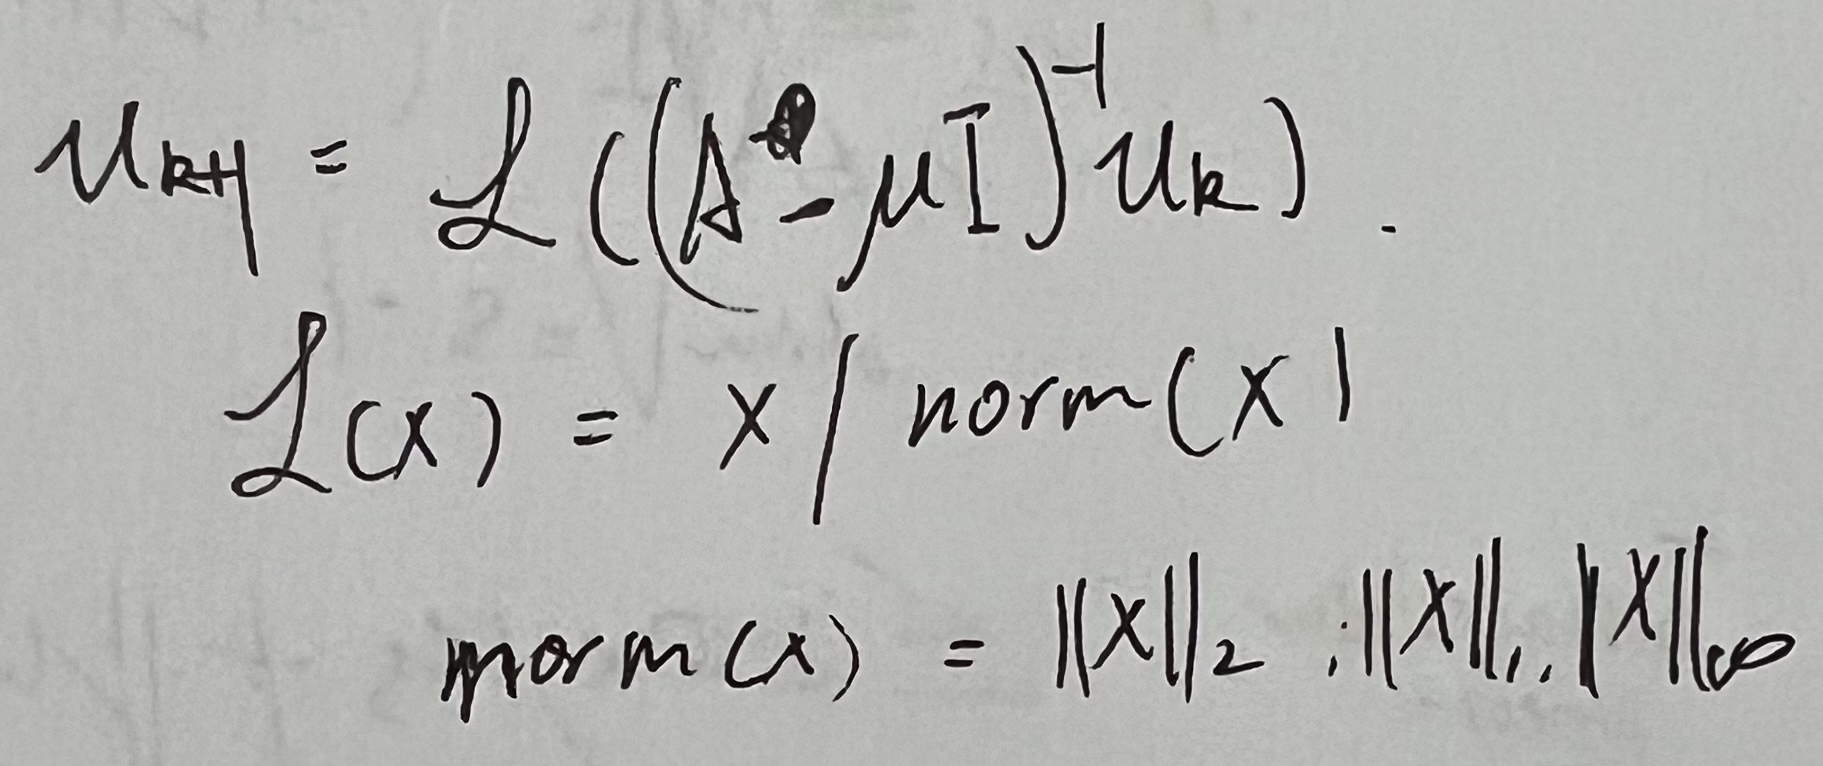 u_{k+1} = ℒ((A - μI)^{-1} u_k).
ℒ(x) = x / norm(x)
norm(x) = ||x||_2, ||x||_1, ||x||_∞